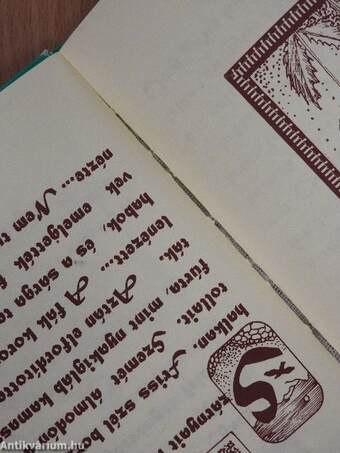 Szárnyait k
halkan. Friss szél bo
tollait. Szemet álmodo
fúrta, mint nyakigláb kamas
tak. Aztán elfordította
lenézett... A fák koro
habok, és a sárga
vek emelgették
nézte... Nem
Antikvárium.hu